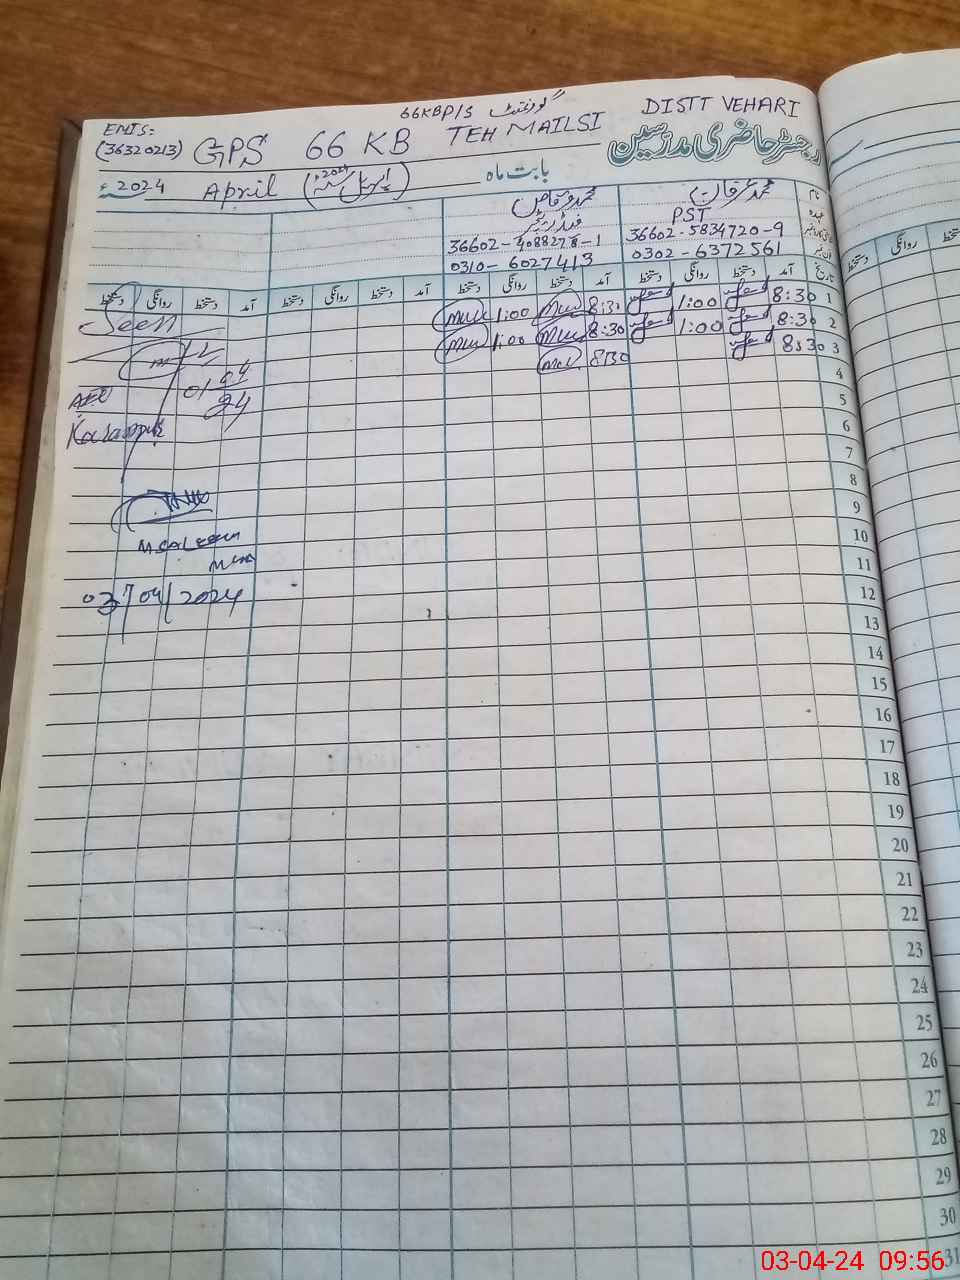 66KBP/S گورنمنٹ
DISTT VEHARI
EMIS:
(36320213) GPS 66 KB TEH MAILSI
رجسٹر حاضری مدرسین
2024ء April (اپریل 2024ء) بابت ماہ
نام محمد عرفان محمد وقاص
عہدہ PST
36602-5834720-9 36602-4088278-1
0302-6372561 0310-6027413
تاریخ آمد دستخط روانگی دستخط آمد دستخط روانگی دستخط آمد دستخط روانگی دستخط آمد دستخط روانگی دستخط
1 8:30 1:00 8:30 1:00
Seen
2 8:30 1:00 8:30 1:00
3 8:30 8:30
4
01 04 24
5
AEO
6
Karampur
7
8
9
10
11
12
03/04/2024
13
14
15
16
17
18
19
20
21
22
23
24
25
26
27
28
29
30
31
روانگی
دستخط
03-04-24 09:56